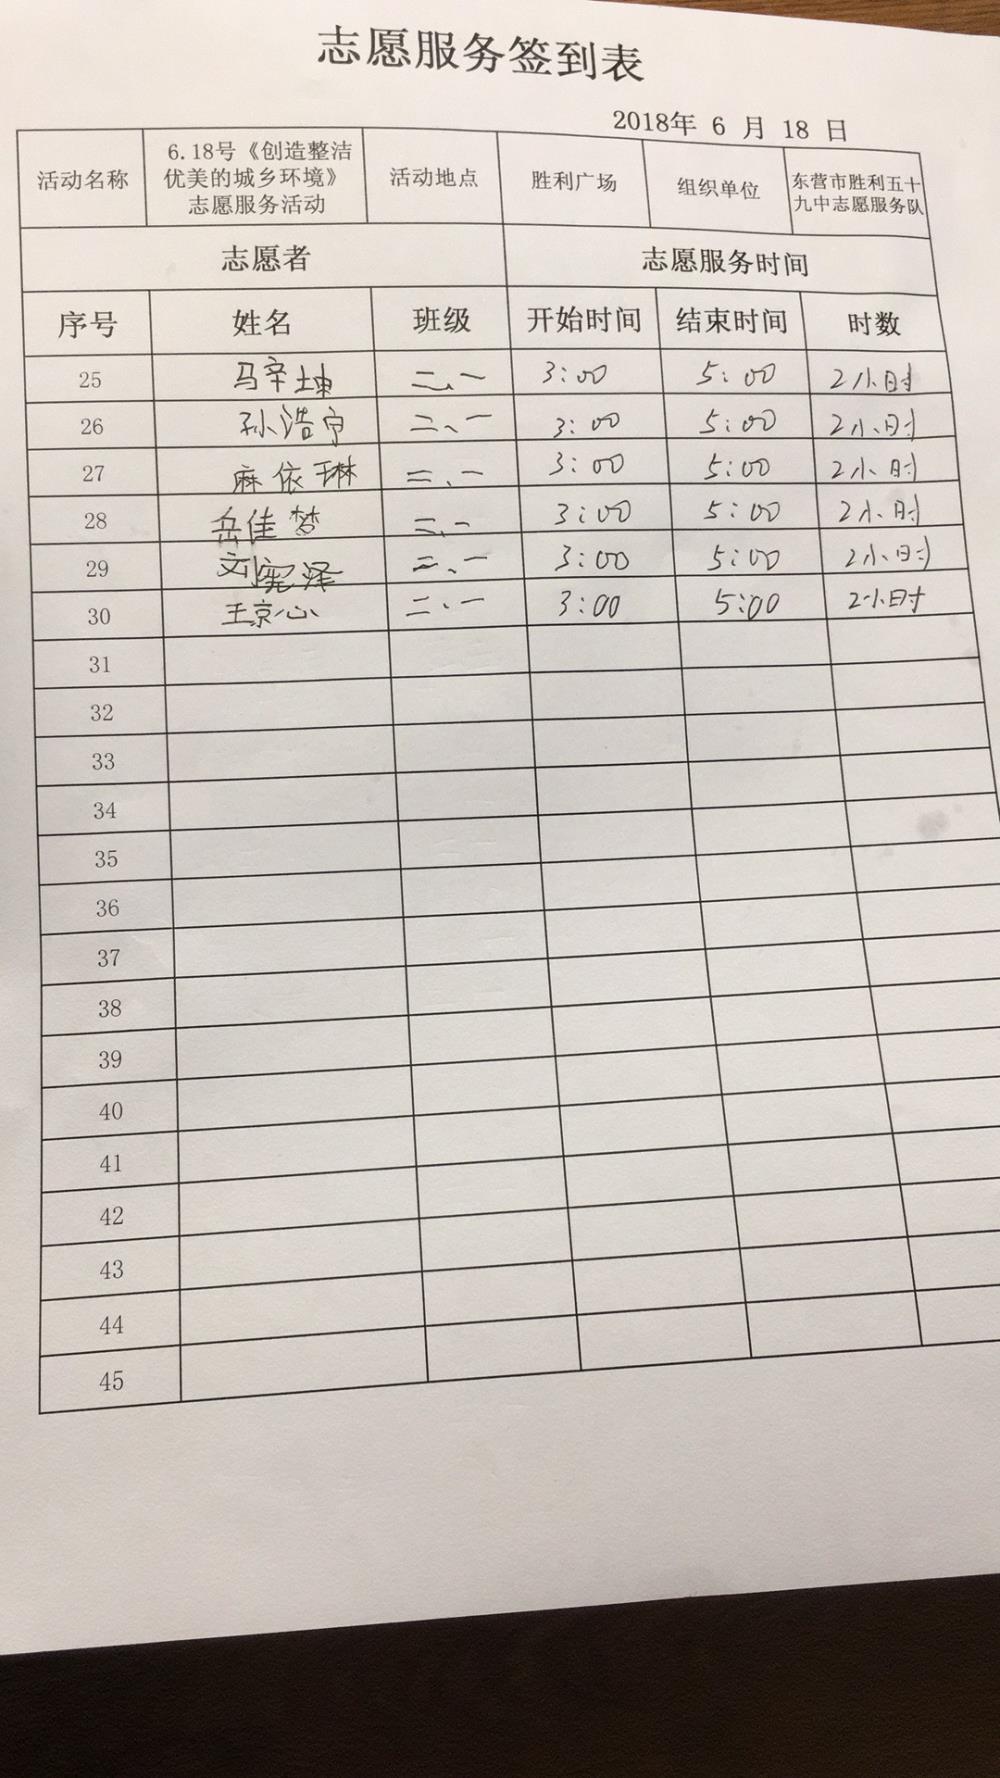 志愿服务签到表
2018年 6 月 18 日
活动名称 6.18号《创造整洁优美的城乡环境》志愿服务活动 活动地点 胜利广场 组织单位 东营市胜利五十九中志愿服务队
志愿者 志愿服务时间
序号 姓名 班级 开始时间 结束时间 时数
25 马辛坤 二、一 3:00 5:00 2小时
26 孙浩宁 二、一 3:00 5:00 2小时
27 麻依琳 二、一 3:00 5:00 2小时
28 岳佳梦 二、一 3:00 5:00 2小时
29 刘宪泽 二、一 3:00 5:00 2小时
30 王京心 二、一 3:00 5:00 2小时
31
32
33
34
35
36
37
38
39
40
41
42
43
44
45